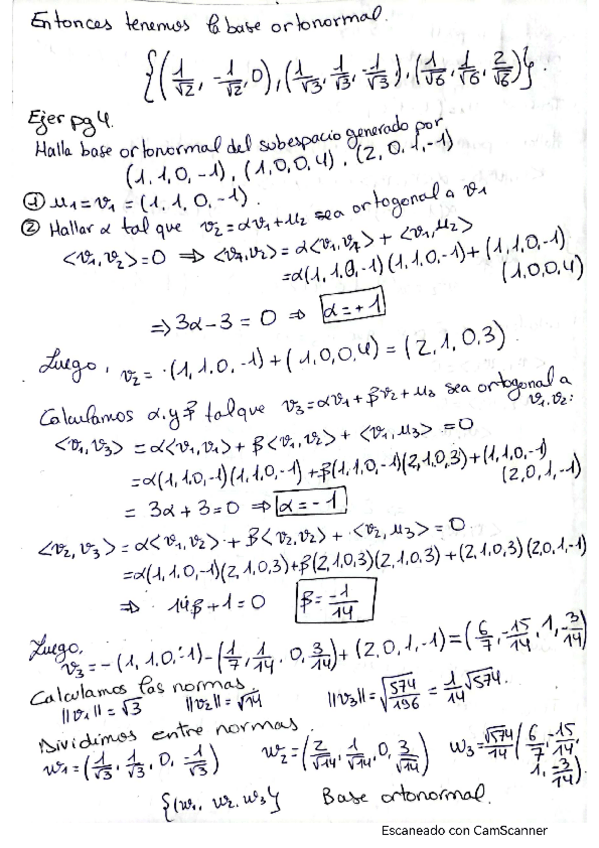 Entonces tenemos la base ortonormal.
{(1/√2, -1/√2, 0), (1/√3, 1/√3, -1/√3), (1/√6, 1/√6, 2/√6)}.
Ejer pg 4.
Halla base ortonormal del subespacio generado por
(1, 1, 0, -1), (1, 0, 0, 4), (2, 0, 1, -1)
① u1 = v1 = (1, 1, 0, -1).
② Hallar α tal que v2 = αv1 + u2 sea ortogonal a v1
<v1, v2> = 0 ⇒ <v1, v2> = α<v1, v1> + <v1, u2>
= α(1, 1, 0, -1)(1, 1, 0, -1) + (1, 1, 0, -1)
(1, 0, 0, 4)
⇒ 3α - 3 = 0 ⇒ α = +1
Luego, v2 = (1, 1, 0, -1) + (1, 0, 0, 4) = (2, 1, 0, 3).
Calculamos α y β tal que v3 = αv1 + βv2 + u3 sea ortogonal a
v1, v2:
<v1, v3> = α<v1, v1> + β<v1, v2> + <v1, u3> = 0
= α(1, 1, 0, -1)(1, 1, 0, -1) + β(1, 1, 0, -1)(2, 1, 0, 3) + (1, 1, 0, -1)
(2, 0, 1, -1)
= 3α + 3 = 0 ⇒ α = -1
<v2, v3> = α<v1, v2> + β<v2, v2> + <v2, u3> = 0.
= α(1, 1, 0, -1)(2, 1, 0, 3) + β(2, 1, 0, 3)(2, 1, 0, 3) + (2, 1, 0, 3)(2, 0, 1, -1)
⇒ 14β + 1 = 0 β = -1/14
Luego,
v3 = -(1, 1, 0, -1) - (1/7, 1/14, 0, 3/14) + (2, 0, 1, -1) = (6/7, -15/14, 1, -3/14)
Calculamos las normas.
||v1|| = √3 ||v2|| = √14 ||v3|| = √(574/196) = 1/14 √574.
Dividimos entre normas.
w1 = (1/√3, 1/√3, 0, -1/√3) w2 = (2/√14, 1/√14, 0, 3/√14) w3 = √574/14 (6/7, -15/14,
1, -3/14).
{w1, w2, w3} Base ortonormal.
Escaneado con CamScanner